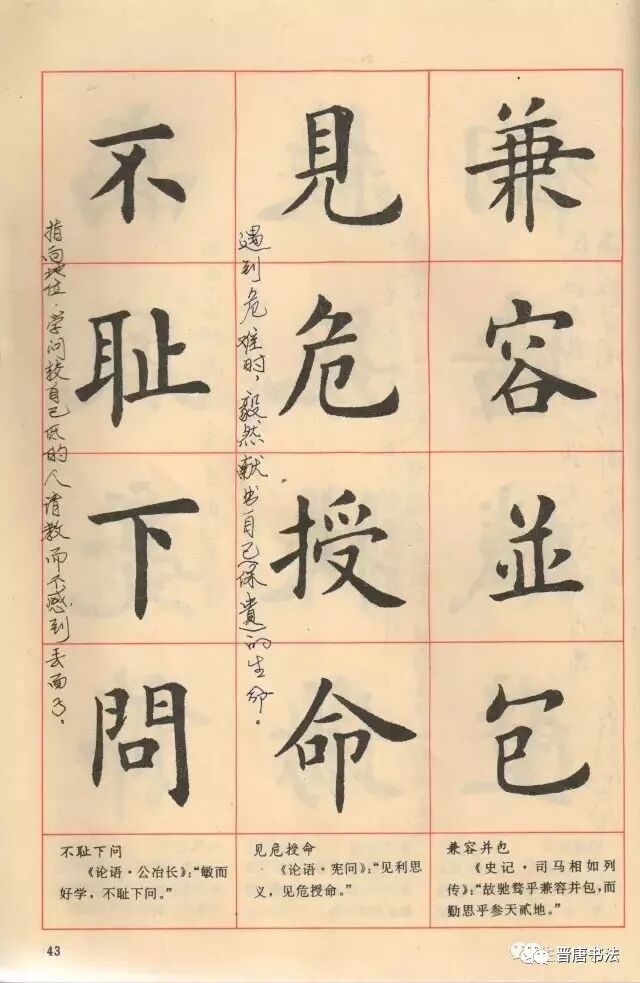 兼容並包
見危授命
遇到危难时，毅然献出自己保遗的生命。
不耻下問
指向地位·学问较自己低的人请教而不感到丢面子。
不耻下问
《论语·公冶长》：“敏而
好学，不耻下问。”
见危授命
《论语·宪问》：“见利思
义，见危授命。”
兼容并包
《史记·司马相如列
传》：“故驰骛乎兼容并包，而
勤思乎参天贰地。”
43
晋唐书法